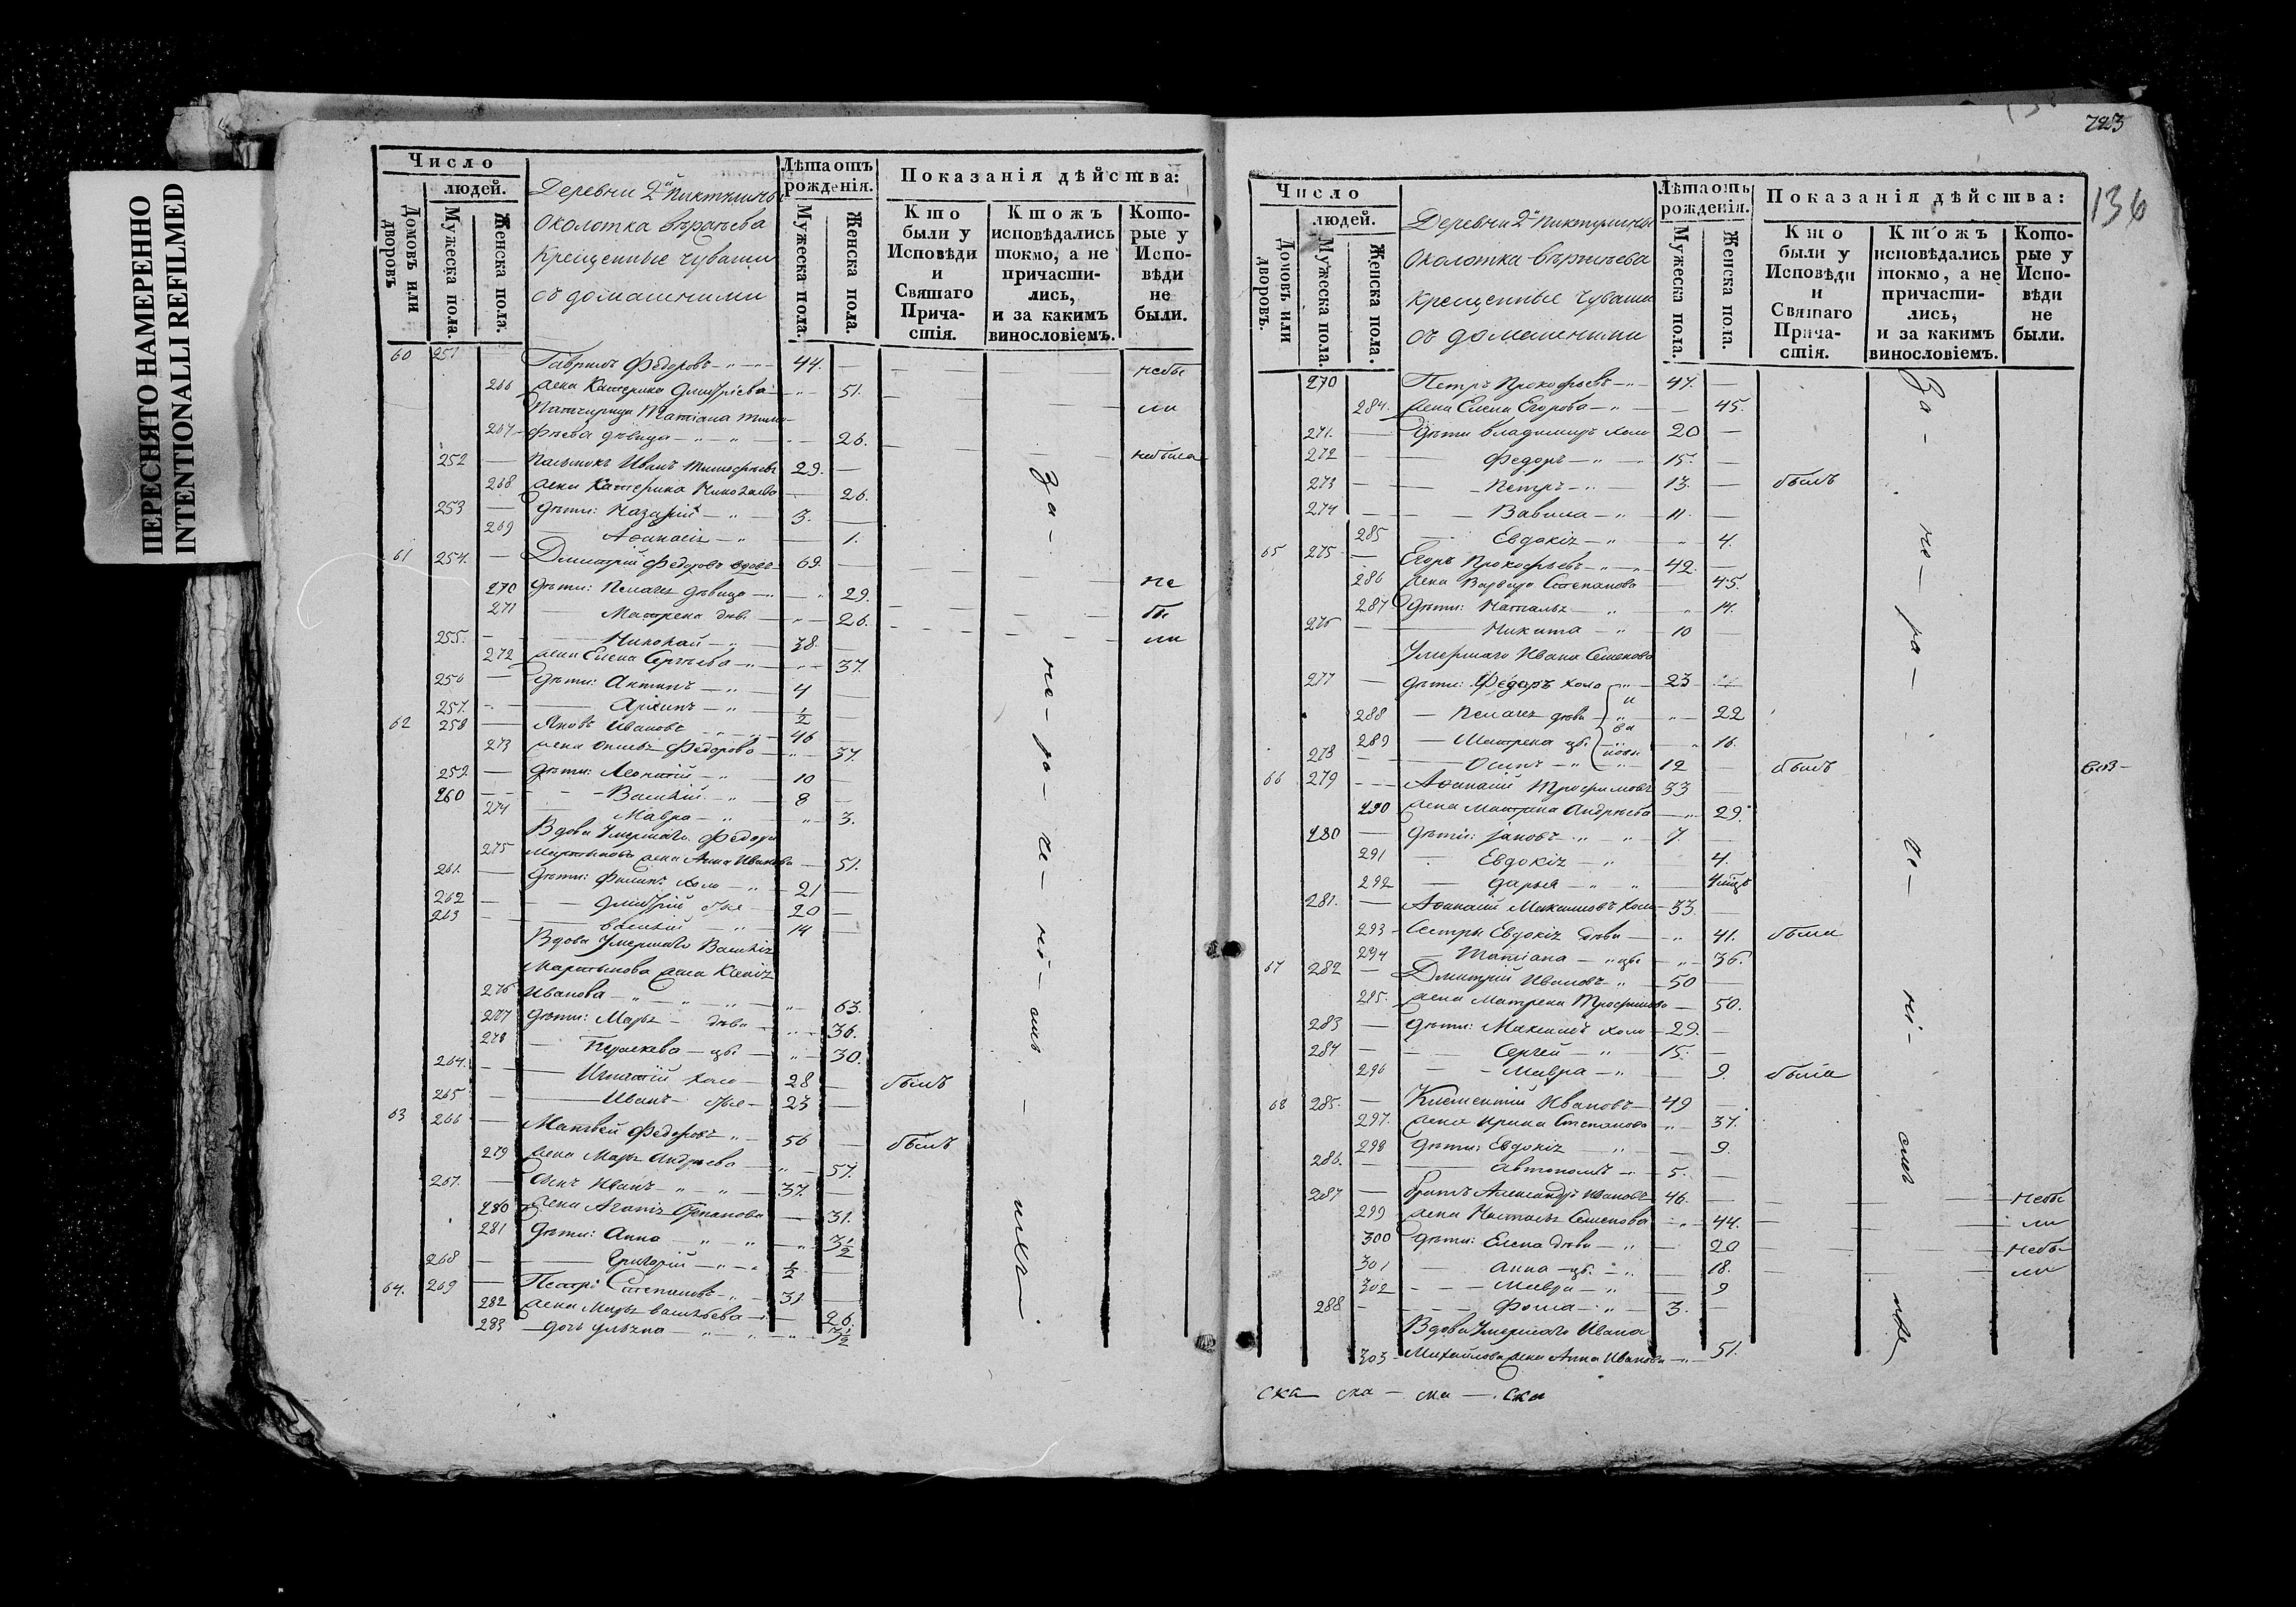 ПЕРЕСНЯТО НАМЕРЕННО
INTENTIONALLI REFILMED
Число
людей.
Домовъ или дворовъ
Мужеска пола.
Женска пола.
Деревни 2й Пихтулины
Околотка
Крещенные чуваши
съ домашними
Лѣта отъ рожденія.
Мужеска пола.
Женска пола.
Показанія дѣйства:
Кто были у Исповѣди и Святаго Причастія.
Ктожъ исповѣдались токмо, а не причастились, и за какимъ винословіемъ.
Которые у Исповѣди не были.
60 251 — Гаврилъ Федоровъ — 44. — небы
266 жена Катерина Дмитріева — 51. — ли
Татіана Тимо
267 фѣева дѣвица — 26. — небыла
252 — Иванъ Тимофѣевъ 29. —
268 жена Катерина Николаева — 26.
253 — дѣти: Назарій — 3. —
269 — — 1.
61 254. — Дмитрій Федоровъ вдовъ 69. —
270 дѣти: Пелагея дѣвица — 29. не
271 — Матрена дѣв: — 26. бы
255. — Николай — 38. — ли
272 жена Елена Сергѣева — 37.
256 — дѣти: Антипъ — 4 —
257. — Архипъ — 1/2 —
62 258 — Яковъ Ивановъ 46 —
273 жена Федорова — 37.
259 — дѣти: Леонтій — 10 —
260 — Василій — 8 —
274 — Мавра — 3.
Вдова Умершаго Федора
275 Мартынова жена Анна Иванова — 51.
261. — дѣти: Филипъ холо — 21 —
262 — Дмитрій — 20 —
263 — Василій — 14 —
Вдова Умершаго Василія
Мартынова жена Ксенія
276 Иванова — 63.
277 дѣти: Марья — дѣви — 36.
278 — Параскева — 30.
264. — Игнатій холо — 28 — былъ
265 — Иванъ — 23 —
63 266 — Матвей Федоровъ 56 — былъ
279 жена Марья Андреева — 57.
267. — сынъ Иванъ — 37. —
280 жена Агапія Степанова — 31.
281 дѣти: Анна — 3 1/2
268 — Григорій — 1/2
64. 269 — Петръ Степановъ — 31 —
282 жена Марья Васильева — 26.
283 — дочь Ульяна — 3 1/2
За — не — ра — че — ні — емъ
723
136
Число
людей.
Домовъ или дворовъ.
Мужеска пола.
Женска пола.
Деревни 2й Пихтулины
Околотка
Крещенные Чуваши
съ домашними
Лѣта отъ рожденія.
Мужеска пола.
Женска пола.
Показанія дѣйства:
Кто были у Исповѣди и Святаго Причастія.
Ктожъ исповѣдались токмо, а не причастились, и за какимъ винословіемъ.
Которые у Исповѣди не были.
270 Петръ Прокофьевъ — 47. —
284. жена Елена Егорова — 45.
271. — дѣти Владимиръ холо 20 —
272 — Федоръ — 15. —
273 — Петръ — 13. — былъ
274 — Вавила — 11. —
285 — Евдокія — 4.
65 275 — Егоръ Прокофьевъ — 42. —
286 жена Варвара Степанова — 45.
287 дѣти: Наталья — 14.
276 — Никита — 10 —
Умершаго Ивана Семенова
277 — дѣти: Федоръ холо — 23 —
288 — Пелагея дѣви — 22
289 — Матрена — 16.
278 — Осипъ — 12 — былъ
66 279 — Афанасій Трофимовъ 33 —
290 жена Матрена Андреева — 29.
280 — дѣти: Яковъ — 7. —
291 — Евдокія — 4.
292 — Дарья — 4мцѣ
281. — Афанасій Максимовъ холо 33. —
293 — Сестры Евдокія дѣви — 41. были
294 — Татіана — 36.
67 282 — Дмитрій Ивановъ — 50 —
295. жена Матрена Трофимова — 50.
283 — дѣти: Максимъ холо — 29. —
284 — Сергей — 15. —
296 — Мавра — 9. была
68 285. — Климентій Ивановъ — 49 —
297. жена Ирина Степанова — 37.
298 дѣти: Евдокія — 9.
286. — Автономъ — 5. —
287 — братъ Александръ Ивановъ 46. — небы
299 жена Наталья Семенова — 44. — ли
300 дѣти: Елена дѣви — 20 — небы
301 — Анна — 18. — ли
302 — Мавра — 9
288 — Фома — 3. —
Вдова Умершаго Ивана
303 — Михайлова жена Анна Иванова — 51.
За — не — ра — че — ні — емъ
ска ска — ска — ска